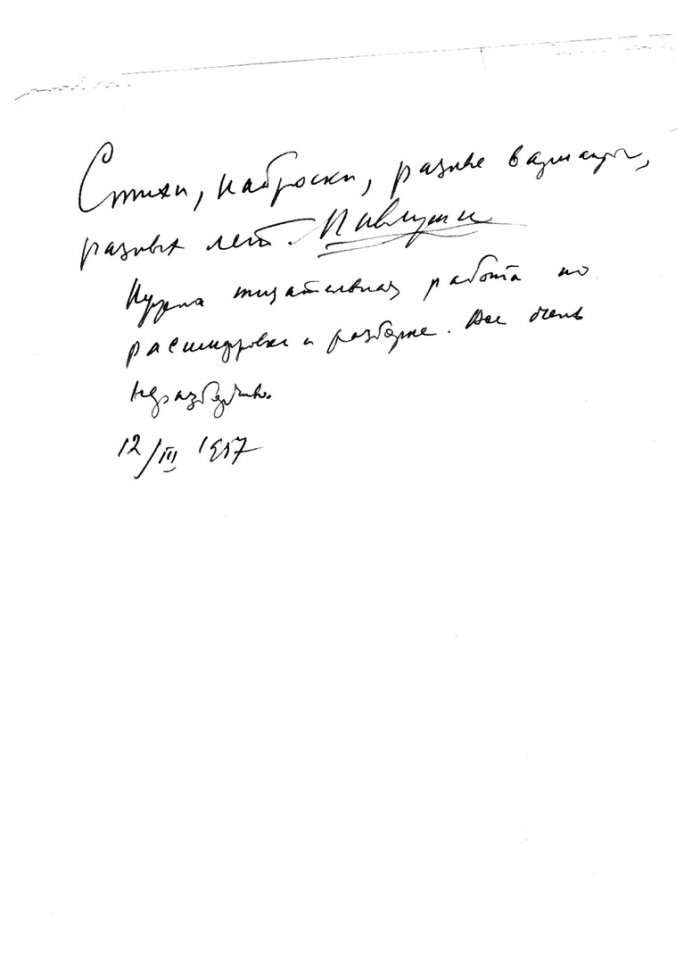 Стихи, наброски, разные варианты,
разных лет. Павлуши
Нужна тщательная работа по
расшифровке и разборке. Все очень
неразборчиво.
12/III 1957